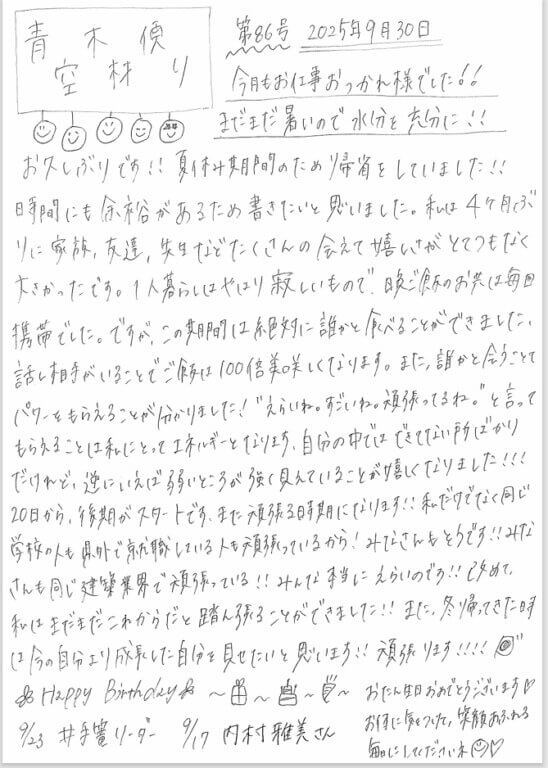 青木偵
空材り
第86号 2025年9月30日
今月もお仕事おつかれ様でした!!
まだまだ暑いので水分を充分に!!
お久しぶりです!! 夏休み期間のため帰省をしていました!!
時間にも余裕があるため書きたいと思いました。私は4ヶ月ぶ
りに家族、友達、先生などたくさんの会えて嬉しさがとてつもなく
大きかったです。1人暮らしはやはり寂しいもので、晩ご飯のお共は毎回
携帯でした。ですが、この期間は絶対に誰かと食べることができました、
話し相手がいることでご飯は100倍美味しくなります。また、誰かと会うことで
パワーをもらえることが分かりました! "えらいね。すごいね。頑張ってるね。"と言って
もらえることは私にとってエネルギーとなります、自分の中ではできてない所ばかり
だけれど、逆にいえば弱いところが強く見えていることが嬉しくなりました!!!
20日から、後期がスタートです、また頑張る時期になります!! 私だけでなく同じ
学校の人も県外で就職している人も頑張っているから! みなさんもそうです!! みな
さんも同じ建築業界で頑張っている!! みんな本当にえらいのです!! 改めて、
私はまだまだこれからだと踏ん張ることができました!! また、冬帰ってきた時
は今の自分より成長した自分を見せたいと思います!! 頑張ります!!!!
Happy Birthday
9/23 井手寛リーダー 9/17 内村雅美さん
お誕生日おめでとうございます♡
お体に気をつけて、笑顔あふれる
毎日にしてくださいネ